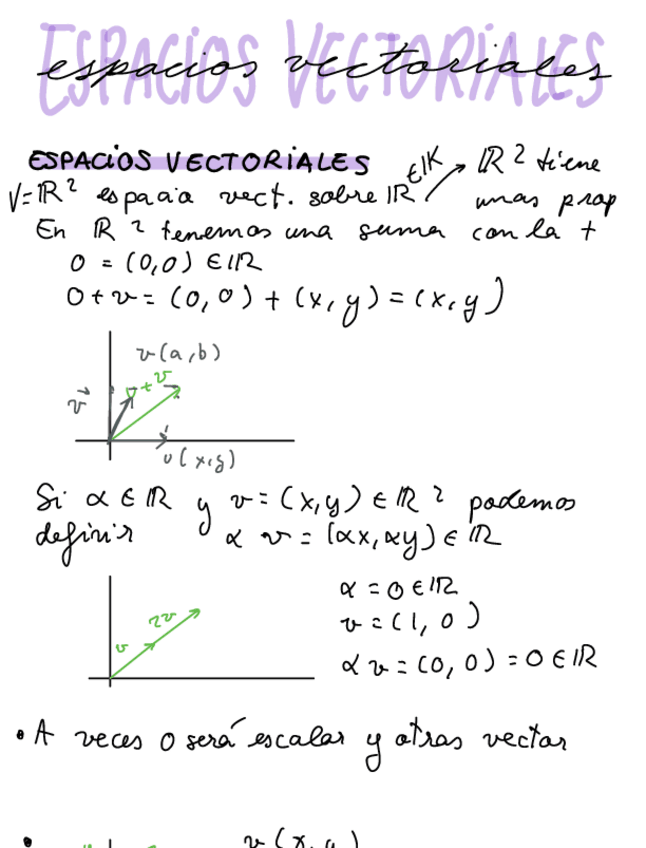 ESPACIOS VECTORIALES
espacios vectoriales
ESPACIOS VECTORIALES ∈IK → IR² tiene
V=IR² espacio vect. sobre IR unas prop
En IR² tenemos una suma con la +
0 = (0,0) ∈ IR
0+v = (0,0) + (x,y) = (x,y)
v(a,b)
v+v
v⃗
v(x,y)
Si α ∈ IR y v = (x,y) ∈ IR² podemos
definir α v = (αx, αy) ∈ IR
α = 0 ∈ IR
2v
v
v = (1, 0)
αv = (0, 0) = 0 ∈ IR
• A veces 0 será escalar y otras vector
• v(x,y)